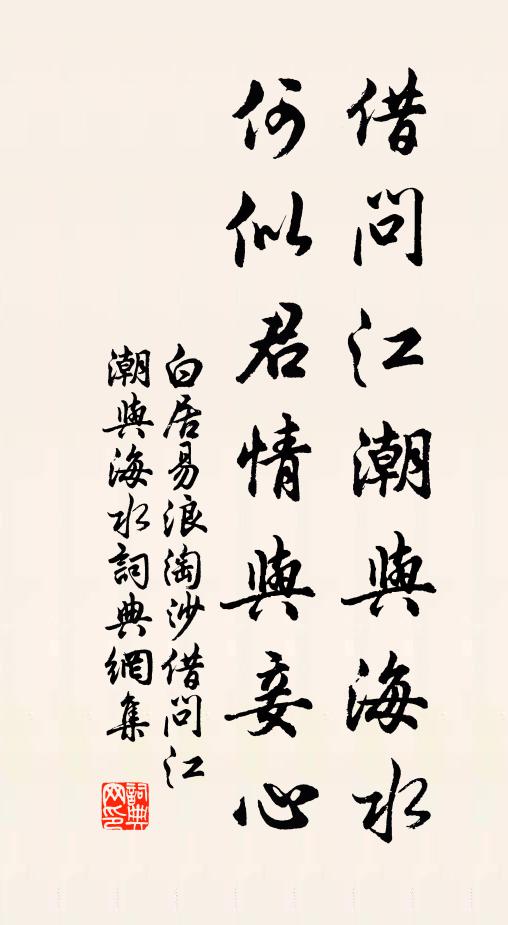 借問江潮與海水
何似君情與妾心
白居易浪淘沙借問江
潮與海水詞典網集
詞典
网印